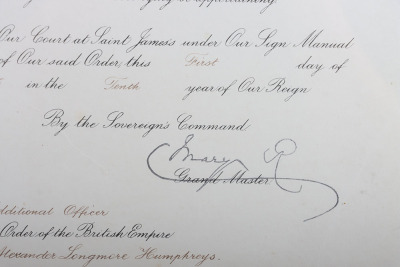 be appertaining
Our Court at Saint James's under Our Sign Manual
of Our said Order, this First day of
in the Tenth year of Our Reign
By the Sovereign's Command
Mary R
Grand Master
Additional Officer
Order of the British Empire
Alexander Longmore Humphreys.